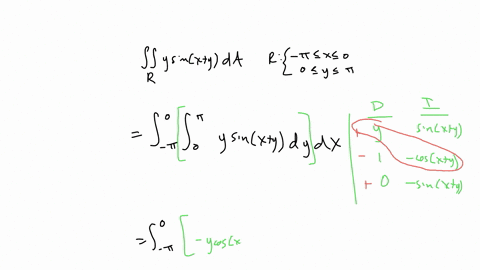 ∬_R y sin(x+y) dA    R: { -π ≤ x ≤ 0
0 ≤ y ≤ π
= ∫_{-π}^{0} [ ∫_{0}^{π} y sin(x+y) dy ] dx
D    I
+ y    sin(x+y)
- 1    -cos(x+y)
+ 0    -sin(x+y)
= ∫_{-π}^{0} [ -y cos(x